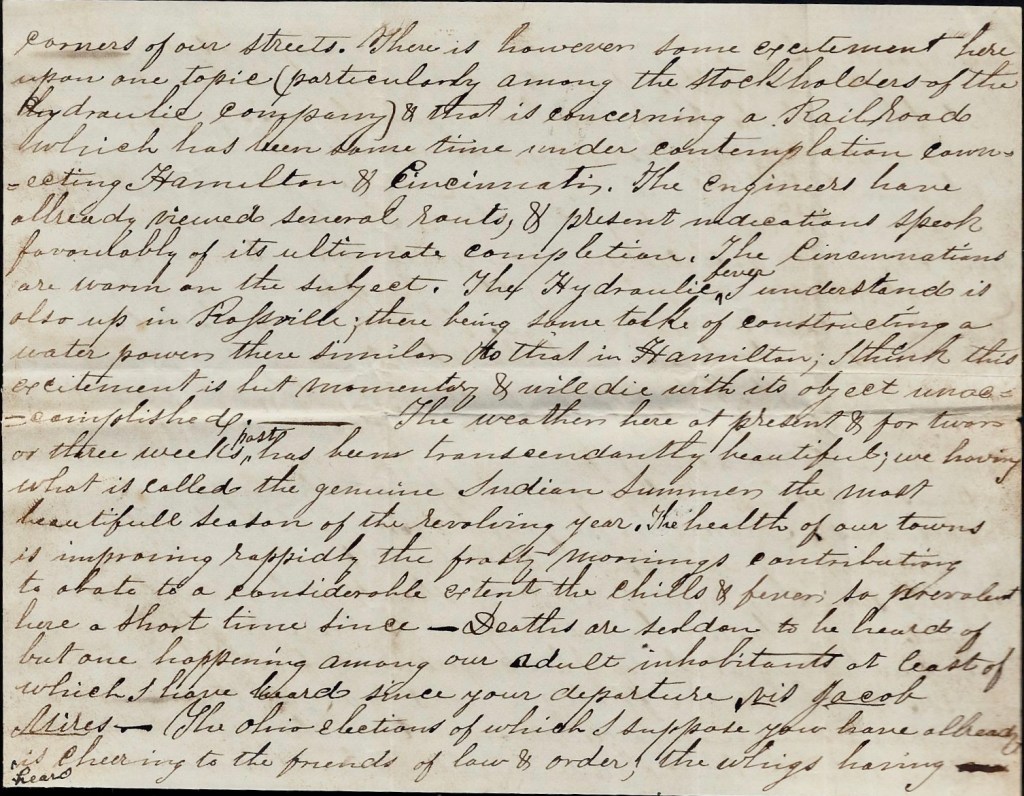 corners of our streets. There is however some excitement here
upon one topic (particularly among the stockholders of the
Hydraulic company) & that is concerning a Rail Road
which has been some time under contemplation conn=
=ecting Hamilton & Cincinnati. The engineers have
allready viewed several routs, & present indications speak
favourably of its ultimate completion. The Cincinnatians
are warm on the subject. The Hydraulic fever I understand is
also up in Rossville; there being some talke of constructing a
water power there similar to that in Hamilton; I think this
excitement is but momentary & will die with its object unac=
=complished. — The weather here at present & for two
or three weeks past has been transcendantly beautiful; we having
what is called the genuine Indian Summer, the most
beautifull season of the revolving year. The health of our towns
is improving rappidly the frosty mornings contributing
to abate to a considerable extent the Chills & fever so prevalent
here a short time since — Deaths are seldon to be heard of
but one happening among our adult inhabitants at least of
which I have heard since your departure, viz Jacob
— The Ohio elections of which I suppose you have allready
heard is cheering to the friends of law & order; the whigs having